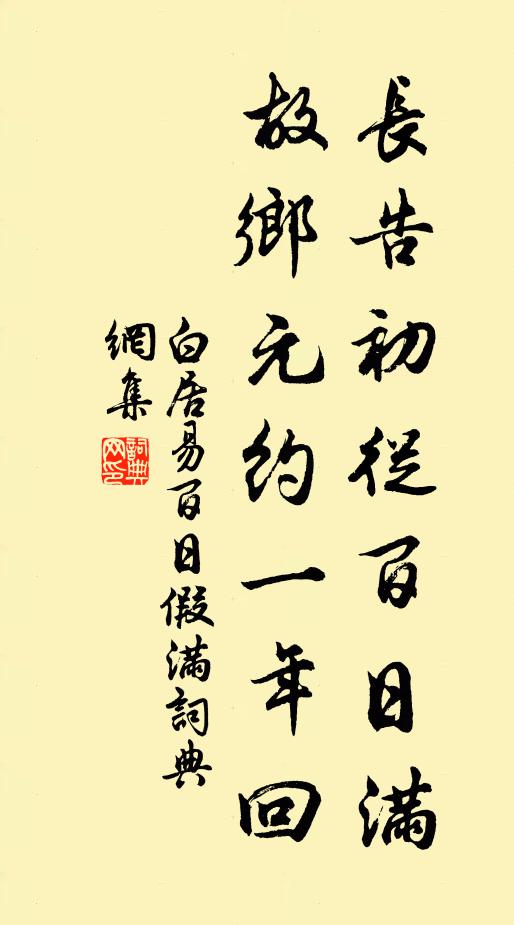 長告初從百日滿
故鄉元約一年回
白居易百日假滿詞典
網集
詞典
网印